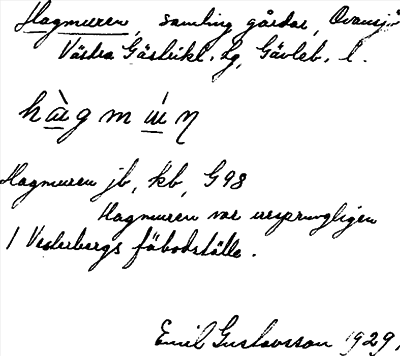 Hagmuren, samling gårdar, Ovansjö
Västra Gästrikl. tg, Gävleb. l.
hàgmúṇ
Hagmuren jb, kb, G98
Hagmuren var ursprungligen
1 Vesterbergs fäbodställe.
Emil Gustavsson 1929,